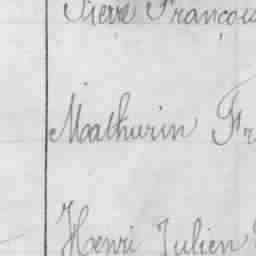 Pierre François
Mathurin Fr
Henri Julien